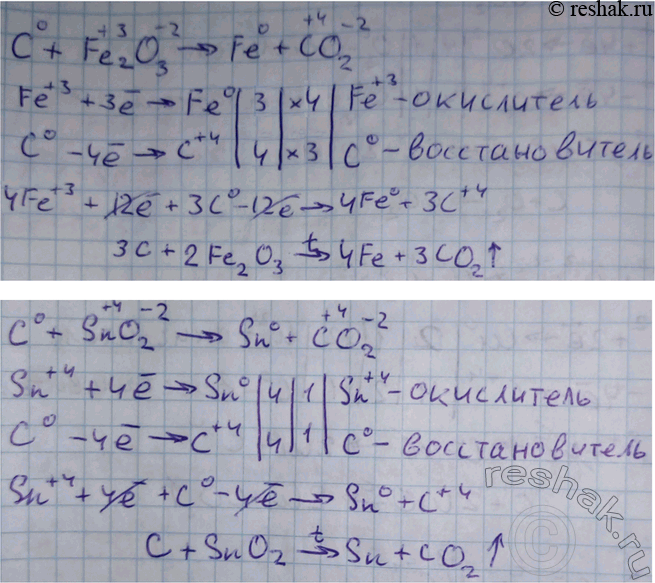 © reshak.ru
C⁰ + Fe₂⁺³O₃⁻² → Fe⁰ + C⁺⁴O₂⁻²
Fe⁺³ + 3ē → Fe⁰ | 3 | ×4 | Fe⁺³ - окислитель
C⁰ - 4ē → C⁺⁴ | 4 | ×3 | C⁰ - восстановитель
4Fe⁺³ + 12ē + 3C⁰ - 12ē → 4Fe⁰ + 3C⁺⁴
3C + 2Fe₂O₃ →ᵗ 4Fe + 3CO₂↑
C⁰ + Sn⁺⁴O₂⁻² → Sn⁰ + C⁺⁴O₂⁻²
Sn⁺⁴ + 4ē → Sn⁰ | 4 | 1 | Sn⁺⁴ - окислитель
C⁰ - 4ē → C⁺⁴ | 4 | 1 | C⁰ - восстановитель
Sn⁺⁴ + 4ē + C⁰ - 4ē → Sn⁰ + C⁺⁴
C + SnO₂ →ᵗ Sn + CO₂↑
reshak.ru